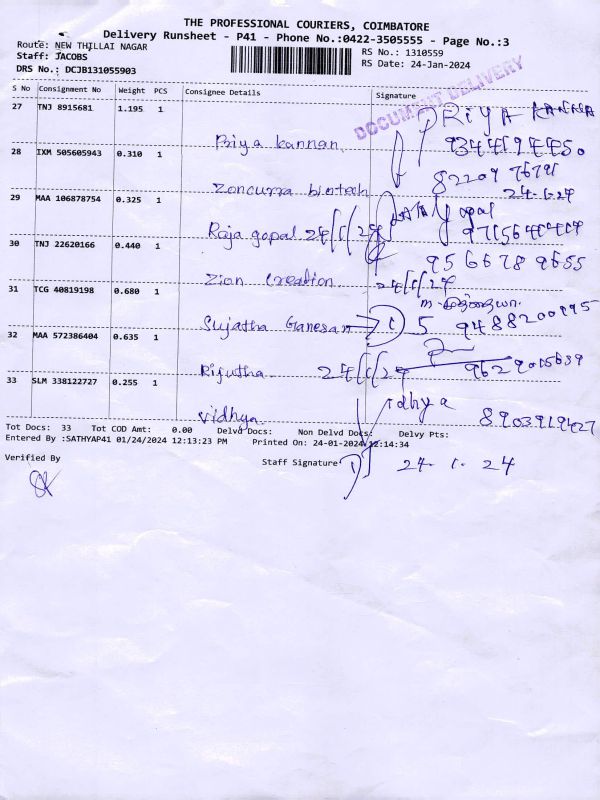 THE PROFESSIONAL COURIERS, COIMBATORE
Delivery Runsheet - P41 - Phone No.:0422-3505555 - Page No.:3
Route: NEW THILLAI NAGAR
Staff: JACOBS
DRS No.: DCJB131055903
RS No.: 1310559
RS Date: 24-Jan-2024
DOCUMENT DELIVERY
S No Consignment No Weight PCS Consignee Details Signature
27 TNJ 8915681 1.195 1
Priya kannan
PRIYA KANNA
28 IXM 505605943 0.310 1
Zoncurra biotech
24.1.24
29 MAA 106878754 0.325 1
Raja gopal 24/1/24
30 TNJ 22620166 0.440 1
9566789655
Zion Creation 24/1/24
31 TCG 40819198 0.680 1
Sujatha Ganesan
32 MAA 572386404 0.635 1
Rijutha 24/1/24
33 SLM 338122727 0.255 1
Vidhya
8903919427
Tot Docs: 33 Tot COD Amt: 0.00 Delvd Docs: Non Delvd Docs: Delvy Pts:
Entered By :SATHYAP41 01/24/2024 12:13:23 PM Printed On: 24-01-2024 12:14:34
Verified By
Staff Signature
24. 1. 24